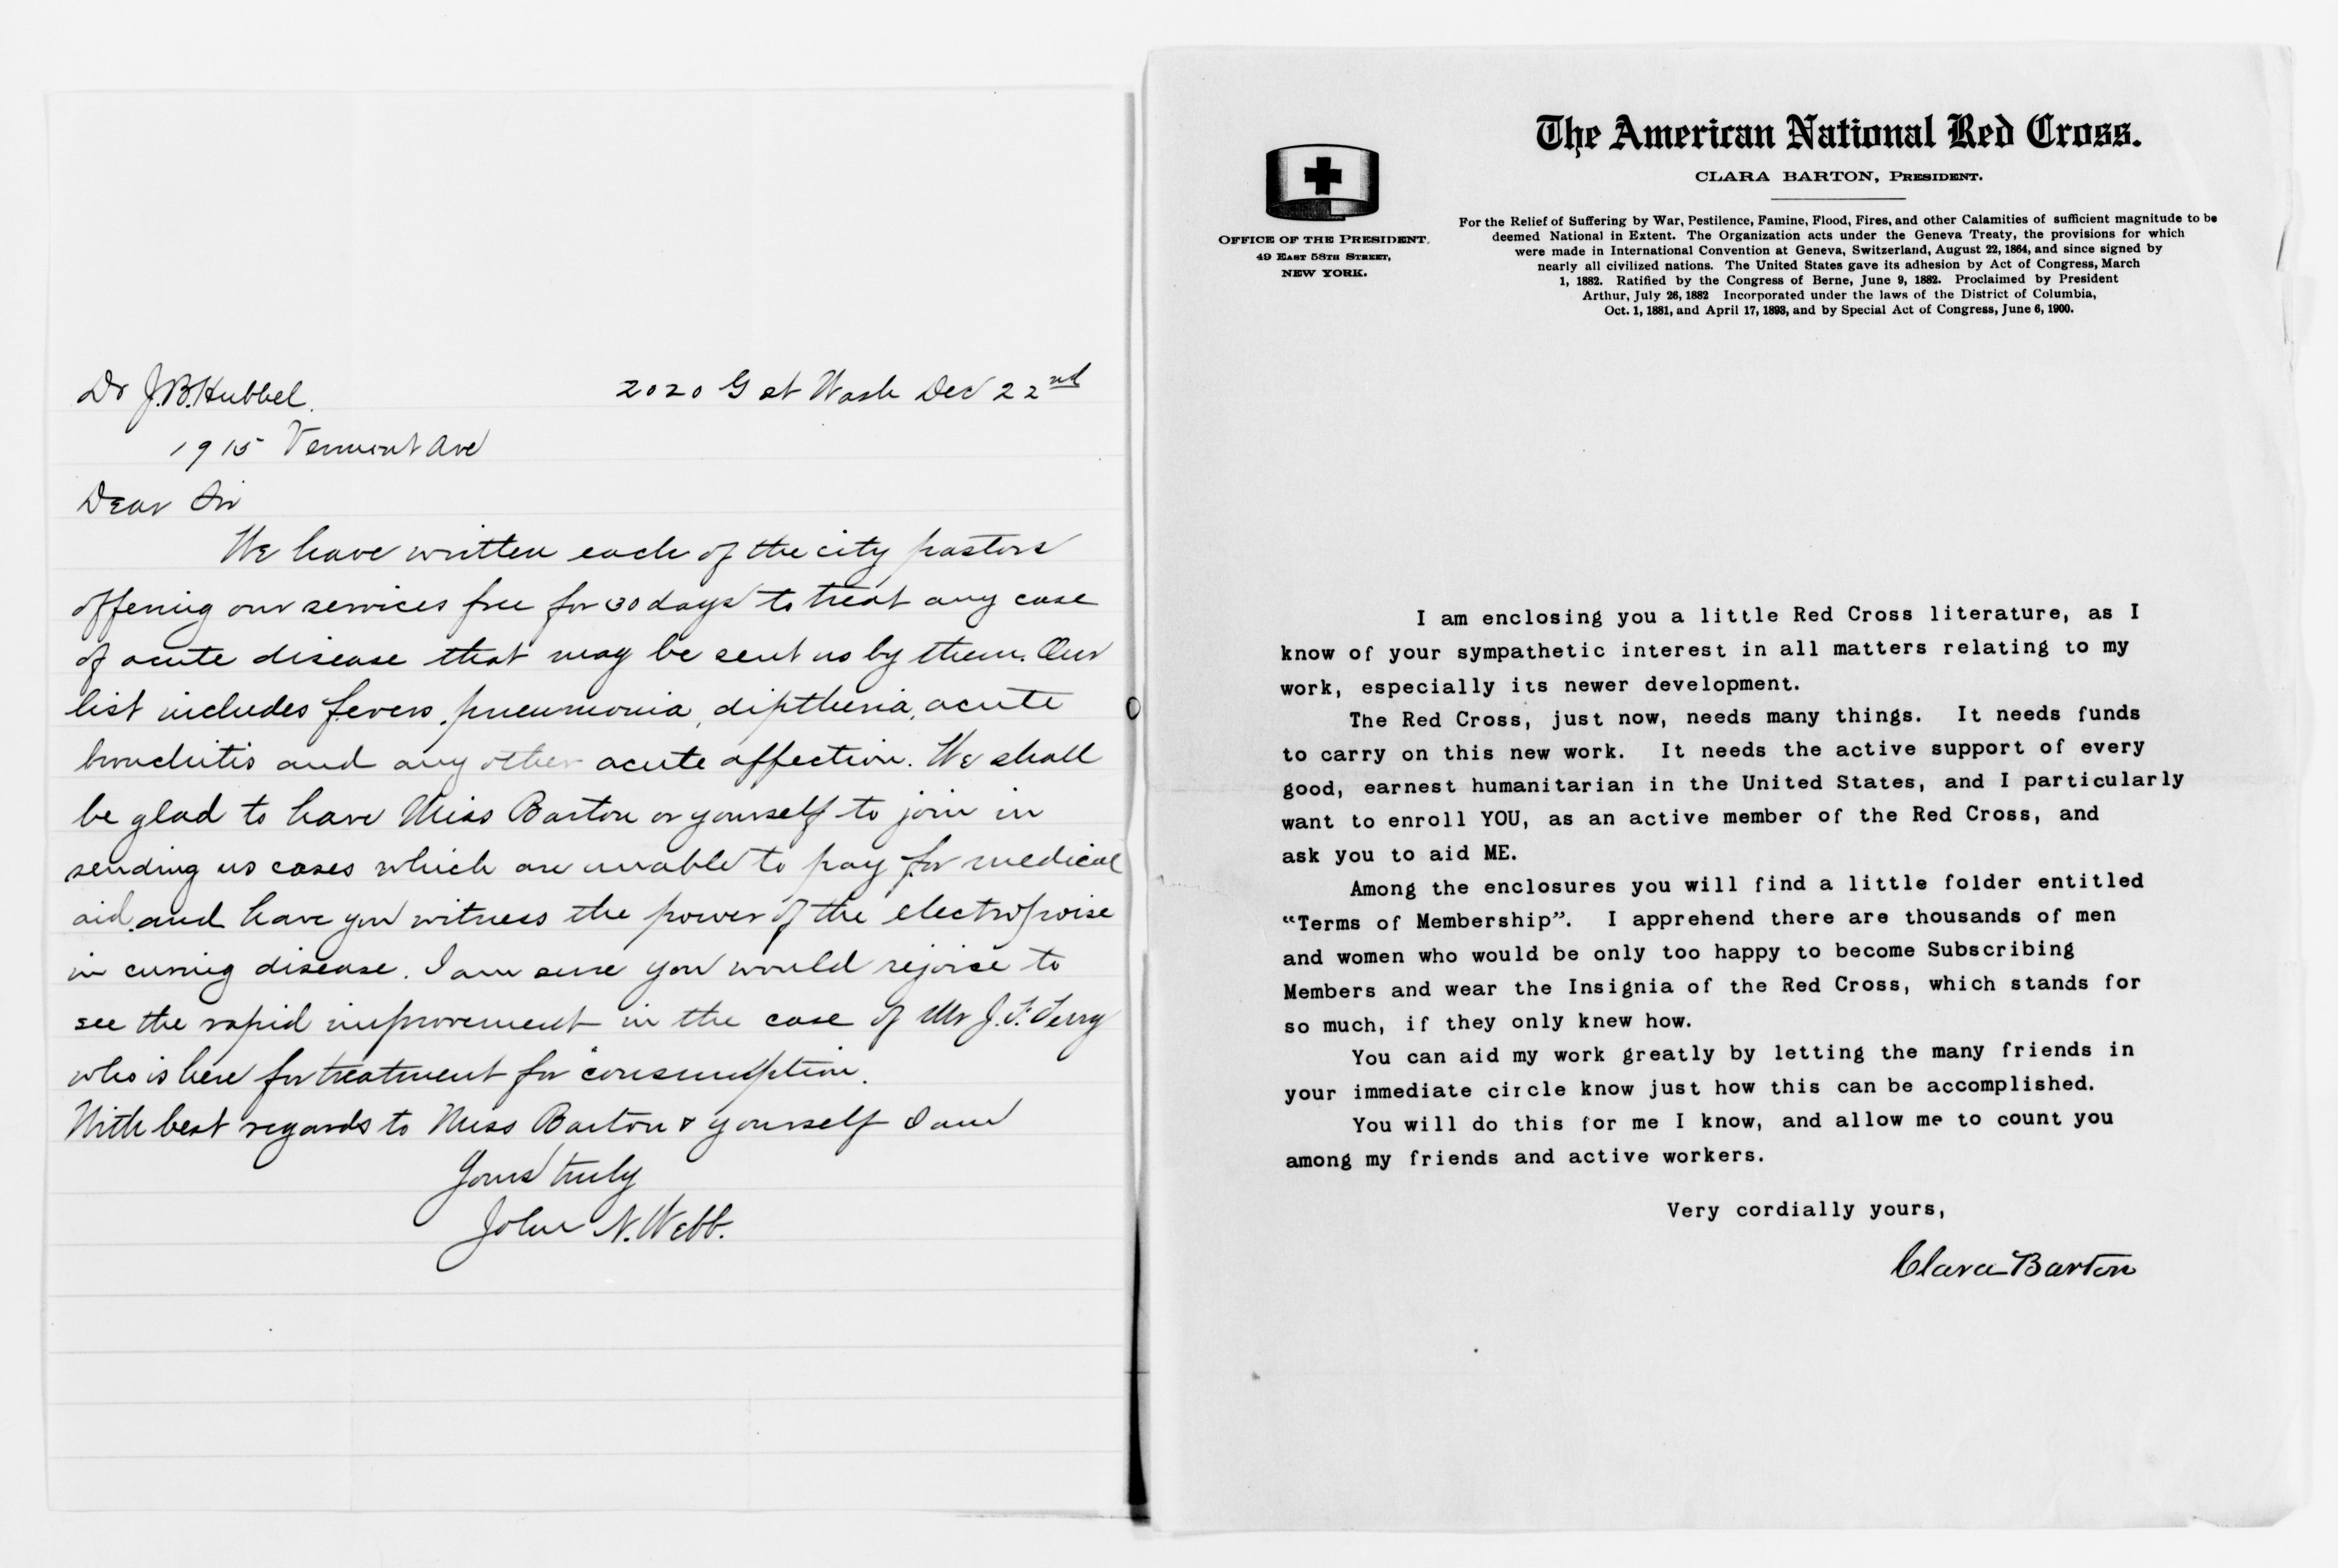 Dr J.B. Hubbel. 2020 G st Wash Dec 22nd
1915 Vermont Ave
Dear Sir
We have written each of the city pastors
offering our services free for 30 days to treat any case
of acute disease that may be sent us by them. Our
list includes fevers, pneumonia, diptheria, acute
bronchitis and any other acute affection. We shall
be glad to have Miss Barton or yourself to join in
sending us cases which are unable to pay for medical
aid and have you witness the power of the electropoise
in curing disease. I am sure you would rejoice to
see the rapid improvement in the case of Mr J. F. Terry
who is here for treatment for consumption.
With best regards to Miss Barton & yourself I am
Yours truly
John N. Webb.
The American National Red Cross.
CLARA BARTON, PRESIDENT.
OFFICE OF THE PRESIDENT,
49 EAST 58TH STREET,
NEW YORK.
For the Relief of Suffering by War, Pestilence, Famine, Flood, Fires, and other Calamities of sufficient magnitude to be
deemed National in Extent. The Organization acts under the Geneva Treaty, the provisions for which
were made in International Convention at Geneva, Switzerland, August 22, 1864, and since signed by
nearly all civilized nations. The United States gave its adhesion by Act of Congress, March
1, 1882. Ratified by the Congress of Berne, June 9, 1882. Proclaimed by President
Arthur, July 26, 1882 Incorporated under the laws of the District of Columbia,
Oct. 1, 1881, and April 17, 1893, and by Special Act of Congress, June 6, 1900.
I am enclosing you a little Red Cross literature, as I
know of your sympathetic interest in all matters relating to my
work, especially its newer development.
The Red Cross, just now, needs many things. It needs funds
to carry on this new work. It needs the active support of every
good, earnest humanitarian in the United States, and I particularly
want to enroll YOU, as an active member of the Red Cross, and
ask you to aid ME.
Among the enclosures you will find a little folder entitled
“Terms of Membership”. I apprehend there are thousands of men
and women who would be only too happy to become Subscribing
Members and wear the Insignia of the Red Cross, which stands for
so much, if they only knew how.
You can aid my work greatly by letting the many friends in
your immediate circle know just how this can be accomplished.
You will do this for me I know, and allow me to count you
among my friends and active workers.
Very cordially yours,
Clara Barton